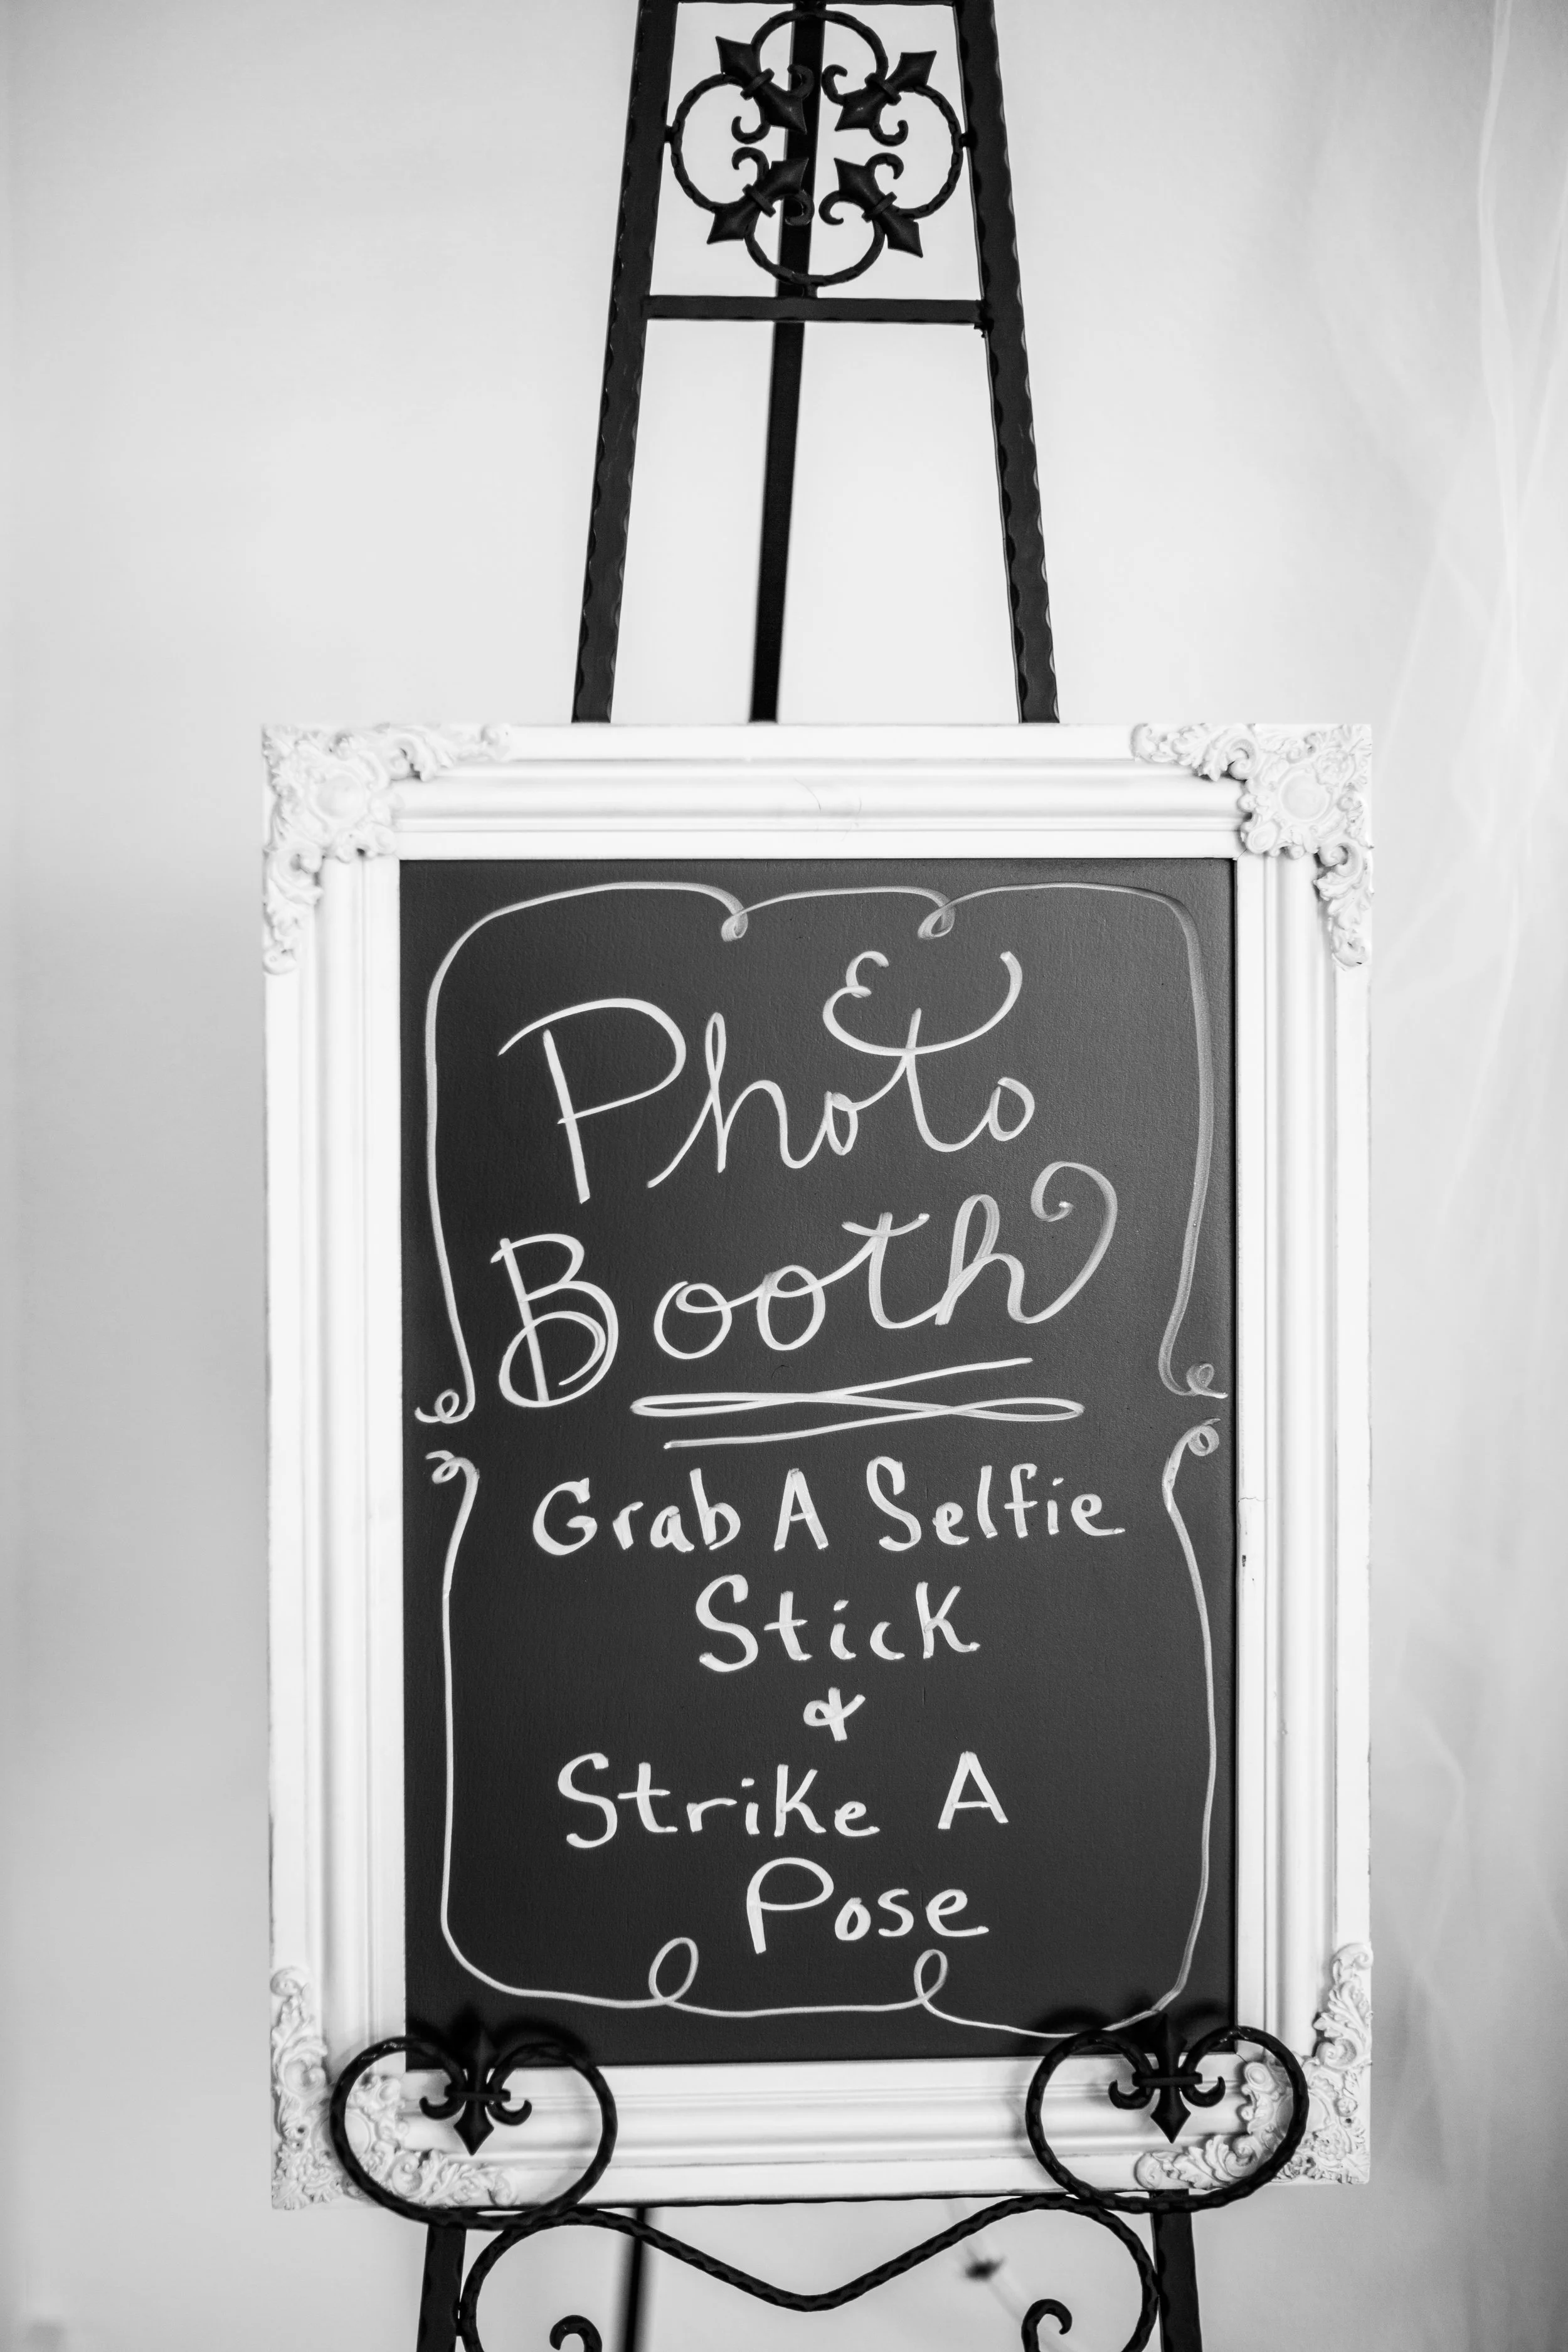 Photo
Booth
Grab A Selfie
Stick
&
Strike A
Pose